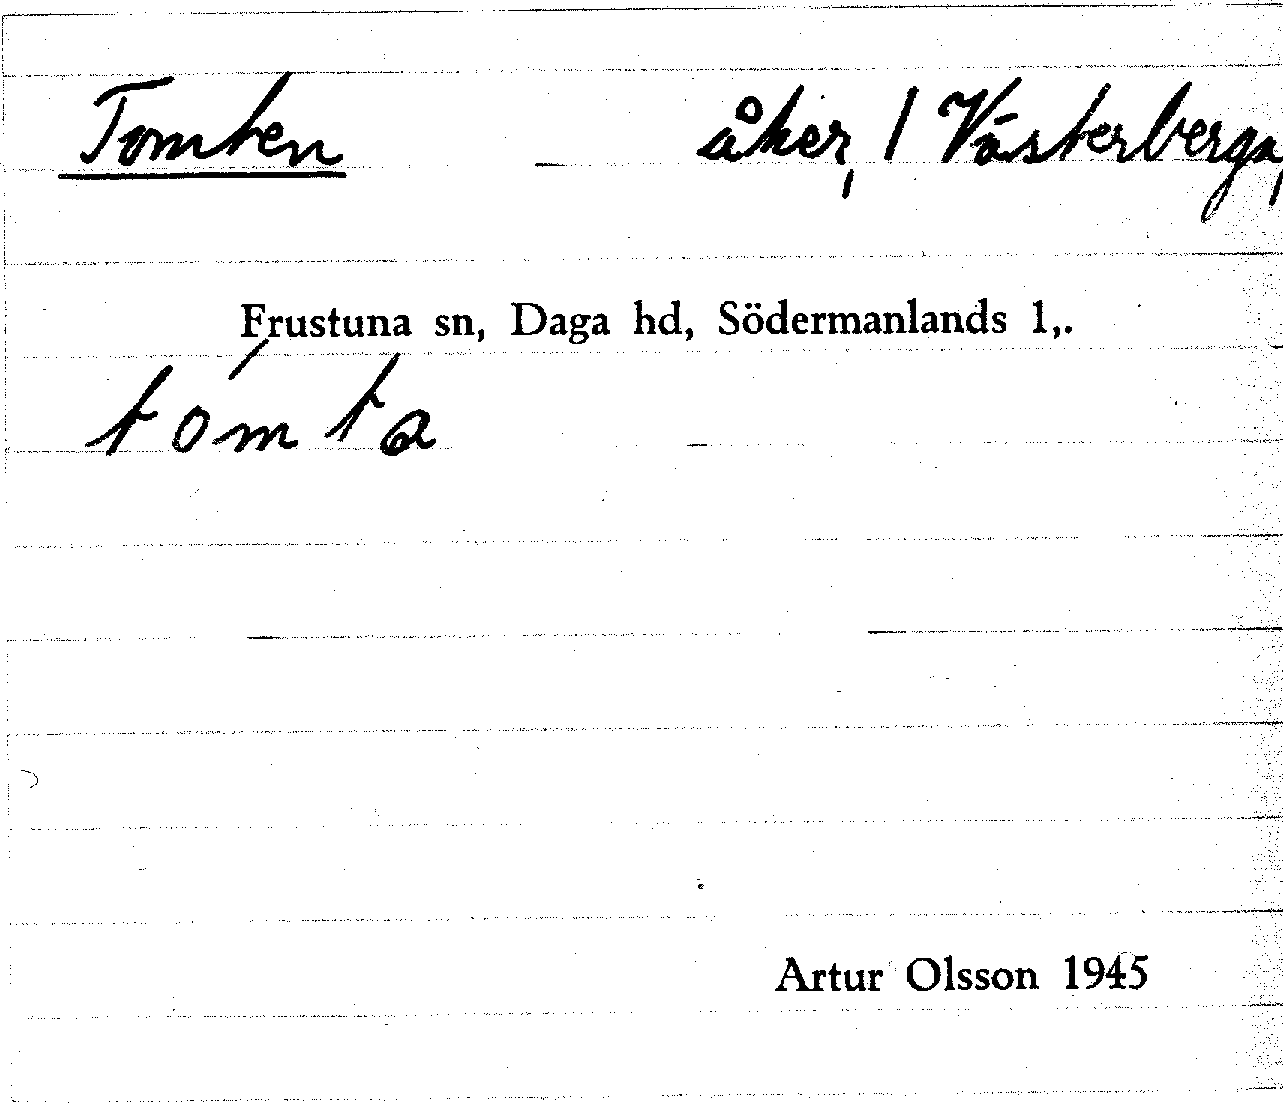 Tomten åker, / Västerberga,
Frustuna sn, Daga hd, Södermanlands l,.
tómta
Artur Olsson 1945